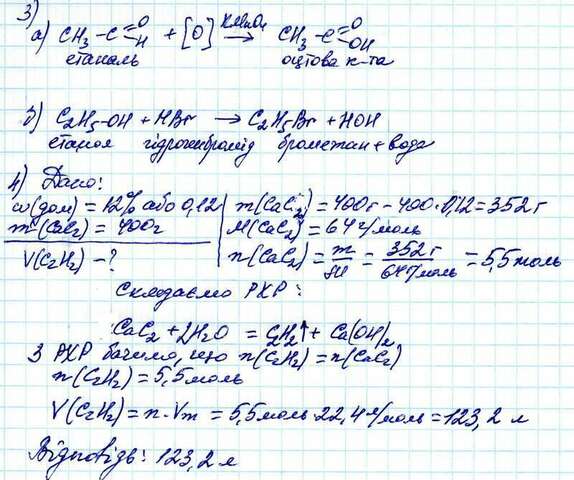 3)
а) CH₃-C=O H + [O] KMnO₄ → CH₃-C=O OH
етаналь оцтова к-та
б) C₂H₅-OH + HBr → C₂H₅Br + HOH
етанол гідрогенбромід брометан + вода
4) Дано:
w(дом) = 12% або 0,12
m(CaC₂) = 400г
V(C₂H₂) - ?
m(CaC₂) = 400г - 400·0,12 = 352г
M(CaC₂) = 64 г/моль
n(CaC₂) = m/M = 352г/64г/моль = 5,5 моль
Складаємо РХР:
CaC₂ + 2H₂O = C₂H₂↑ + Ca(OH)₂
З РХР бачимо, що n(C₂H₂) = n(CaC₂)
n(C₂H₂) = 5,5 моль
V(C₂H₂) = n·Vm = 5,5 моль·22,4 л/моль = 123,2 л
Відповідь: 123,2 л